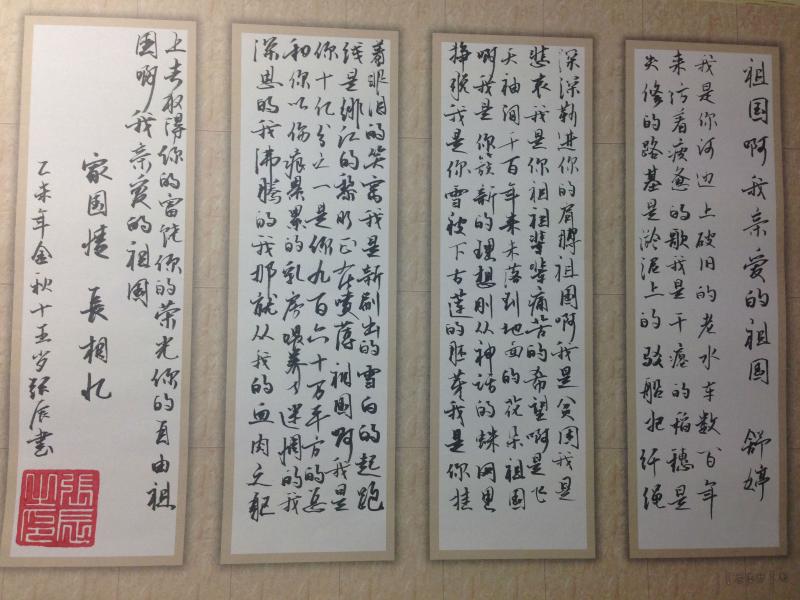 祖国啊我亲爱的祖国 舒婷
我是你河边上破旧的老水车数百年
来纺着疲惫的歌我是干瘪的稻穗是
失修的路基是淤泥上的驳船把纤绳
深深勒进你的肩膊祖国啊我是贫困我是
悲哀我是你祖祖辈辈痛苦的希望啊是飞
天袖间千百年来未落到地面的花朵祖国
啊我是你簇新的理想刚从神话的蛛网里
挣脱我是你雪被下古莲的胚芽我是你挂
着眼泪的笑窝我是新刷出的雪白的起跑
线是绯红的黎明正在喷薄祖国啊我是
你十亿分之一是你九百六十万平方的总
和你以伤痕累累的乳房喂养了迷惘的我
深思的我沸腾的我那就从我的血肉之躯
上去取得你的富饶你的荣光你的自由祖
国啊我亲爱的祖国
家国情长相忆
乙未年金秋十五岁张辰书
张辰之印